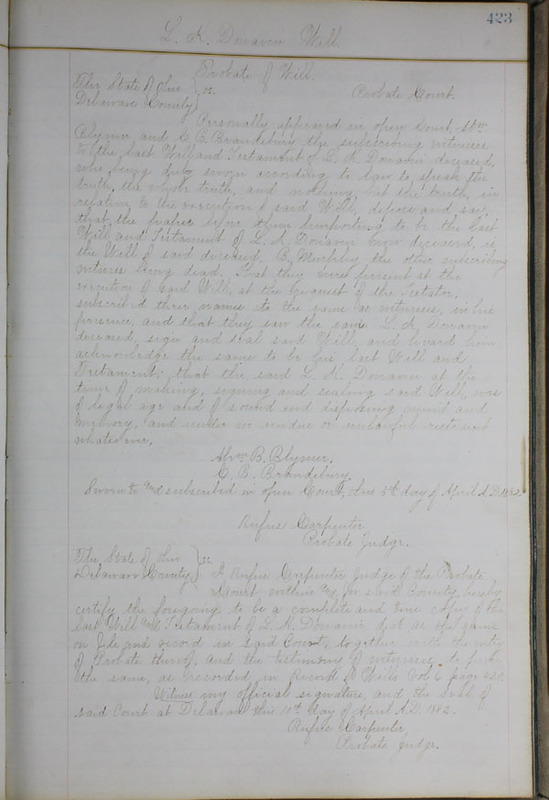 423
L. K. Donavin Will.
Probate of Will.
The State of Ohio } ss.
Delaware County } Probate Court.
Personally appeared in open Court, Abm
Blymer and C. B. Brandebury the subscribing witnesses
to the last Will and Testament of L. K. Donavin deceased,
who being duly sworn according to law to speak the
truth, the whole truth, and nothing but the truth, in
relation to the execution of said Will, depose and say,
that the paper before them purporting to be the last
Will and Testament of L. K. Donavin now deceased, is
the Will of said deceased, B. the other subscribing
witness being dead. That they were present at the
execution of said Will, at the request of the Testator,
subscribed their names to the same as witnesses, in his
presence, and that they saw the said L. K. Donavin
deceased, sign and seal said Will, and heard him
acknowledge the same to be his last Will and
Testament; that the said L. K. Donavin at the
time of making, signing and sealing said Will, was
of legal age and of sound and disposing mind and
memory, and under no undue or unlawful restraint
whatever.
Abm B. Blymer.
C. B. Brandebury
Sworn to and subscribed in open Court, this 5th day of April A.D. 1882.
Rufus Carpenter
Probate Judge.
The State of Ohio } ss
Delaware County } I Rufus Carpenter Judge of the Probate
Court within and for said County, hereby
certify the foregoing to be a complete and true copy of the
last Will and Testament of L. K. Donavin dec'd as the same
on file and record in said Court, together with the entry
of Probate thereof, and the testimony of witnesses to prove
the same, as recorded in Record of Wills Vol 6 page
Witness my official signature, and the Seal of
said Court at Delaware this 10th day of April A.D. 1882.
Rufus Carpenter
Probate Judge.